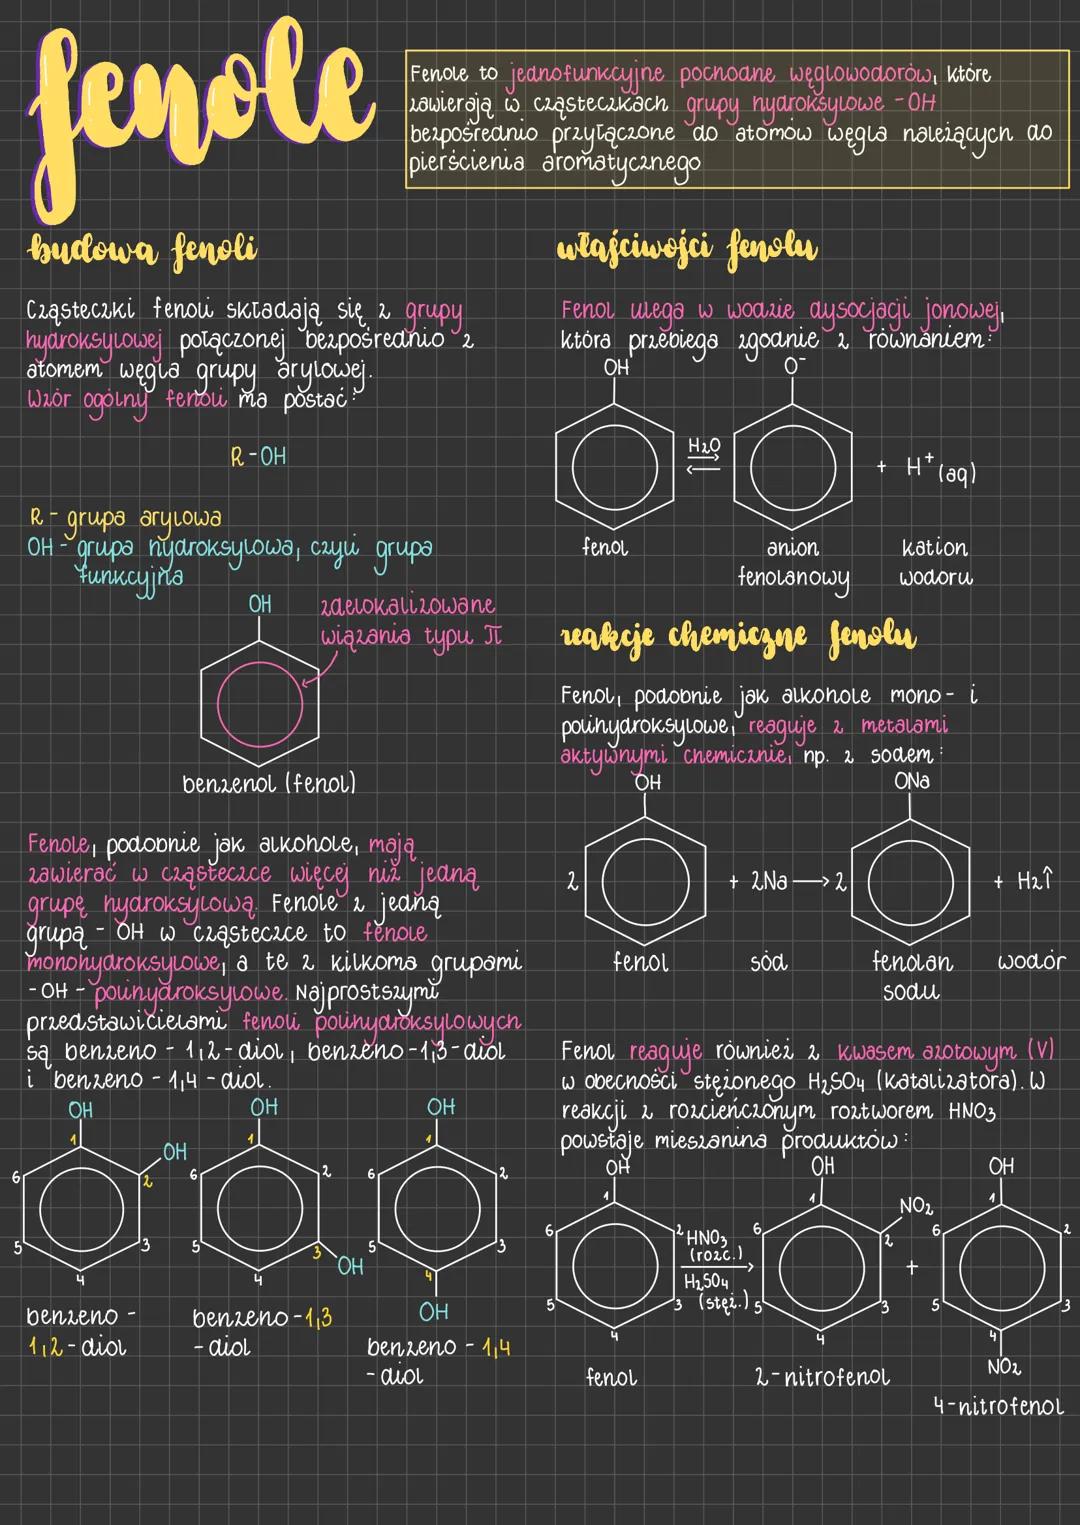 fenole
Fenole to jednofunkcyjne pochodne węglowodorów, które
zawierają w cząsteczkach grupy hydroksylowe -OH
bezpośrednio przyłączone do atomów węgla należących do
pierścienia aromatycznego
budowa fenoli
Cząsteczki fenoli składają się z grupy
hydroksylowej połączonej bezpośrednio z
atomem węgla grupy arylowej.
Wzór ogólny fenoli ma postać:
R-OH
R - grupa arylowa
OH - grupa hydroksylowa, czyli grupa
funkcyjna
OH
zdelokalizowane
wiązania typu π
benzenol (fenol)
Fenole, podobnie jak alkohole, mają
zawierać w cząsteczce więcej niż jedną
grupę hydroksylową. Fenole z jedną
grupą - OH w cząsteczce to fenole
monohydroksylowe, a te z kilkoma grupami
-OH - polihydroksylowe. Najprostszymi
przedstawicielami fenoli polihydroksylowych
są benzeno - 1,2-diol, benzeno-1,3-diol
i benzeno - 1,4 - diol.
OH
1
OH
2
3
4
5
6
benzeno -
1,2 - diol
OH
1
2
3
OH
4
5
6
benzeno -1,3
- diol
OH
1
2
3
4
5
6
OH
benzeno - 1,4
- diol
właściwości fenolu
Fenol ulega w wodzie dysocjacji jonowej,
która przebiega zgodnie z równaniem:
OH
H₂O
O⁻
+ H⁺(aq)
fenol
anion
fenolanowy
kation
wodoru
reakcje chemiczne fenolu
Fenol, podobnie jak alkohole mono- i
polihydroksylowe, reaguje z metalami
aktywnymi chemicznie, np. z sodem:
OH
ONa
2
+ 2Na ⟶ 2
+ H₂↑
fenol
sód
fenolan
sodu
wodór
Fenol reaguje również z kwasem azotowym (V)
w obecności stężonego H₂SO₄ (katalizatora). W
reakcji z rozcieńczonym roztworem HNO₃
powstaje mieszanina produktów:
OH
1
2
3
4
5
6
fenol
HNO₃
(rozc.)
H₂SO₄
(stęż.)
OH
1
NO₂
2
3
4
5
6
2-nitrofenol
+
OH
1
2
3
4
5
6
NO₂
4-nitrofenol